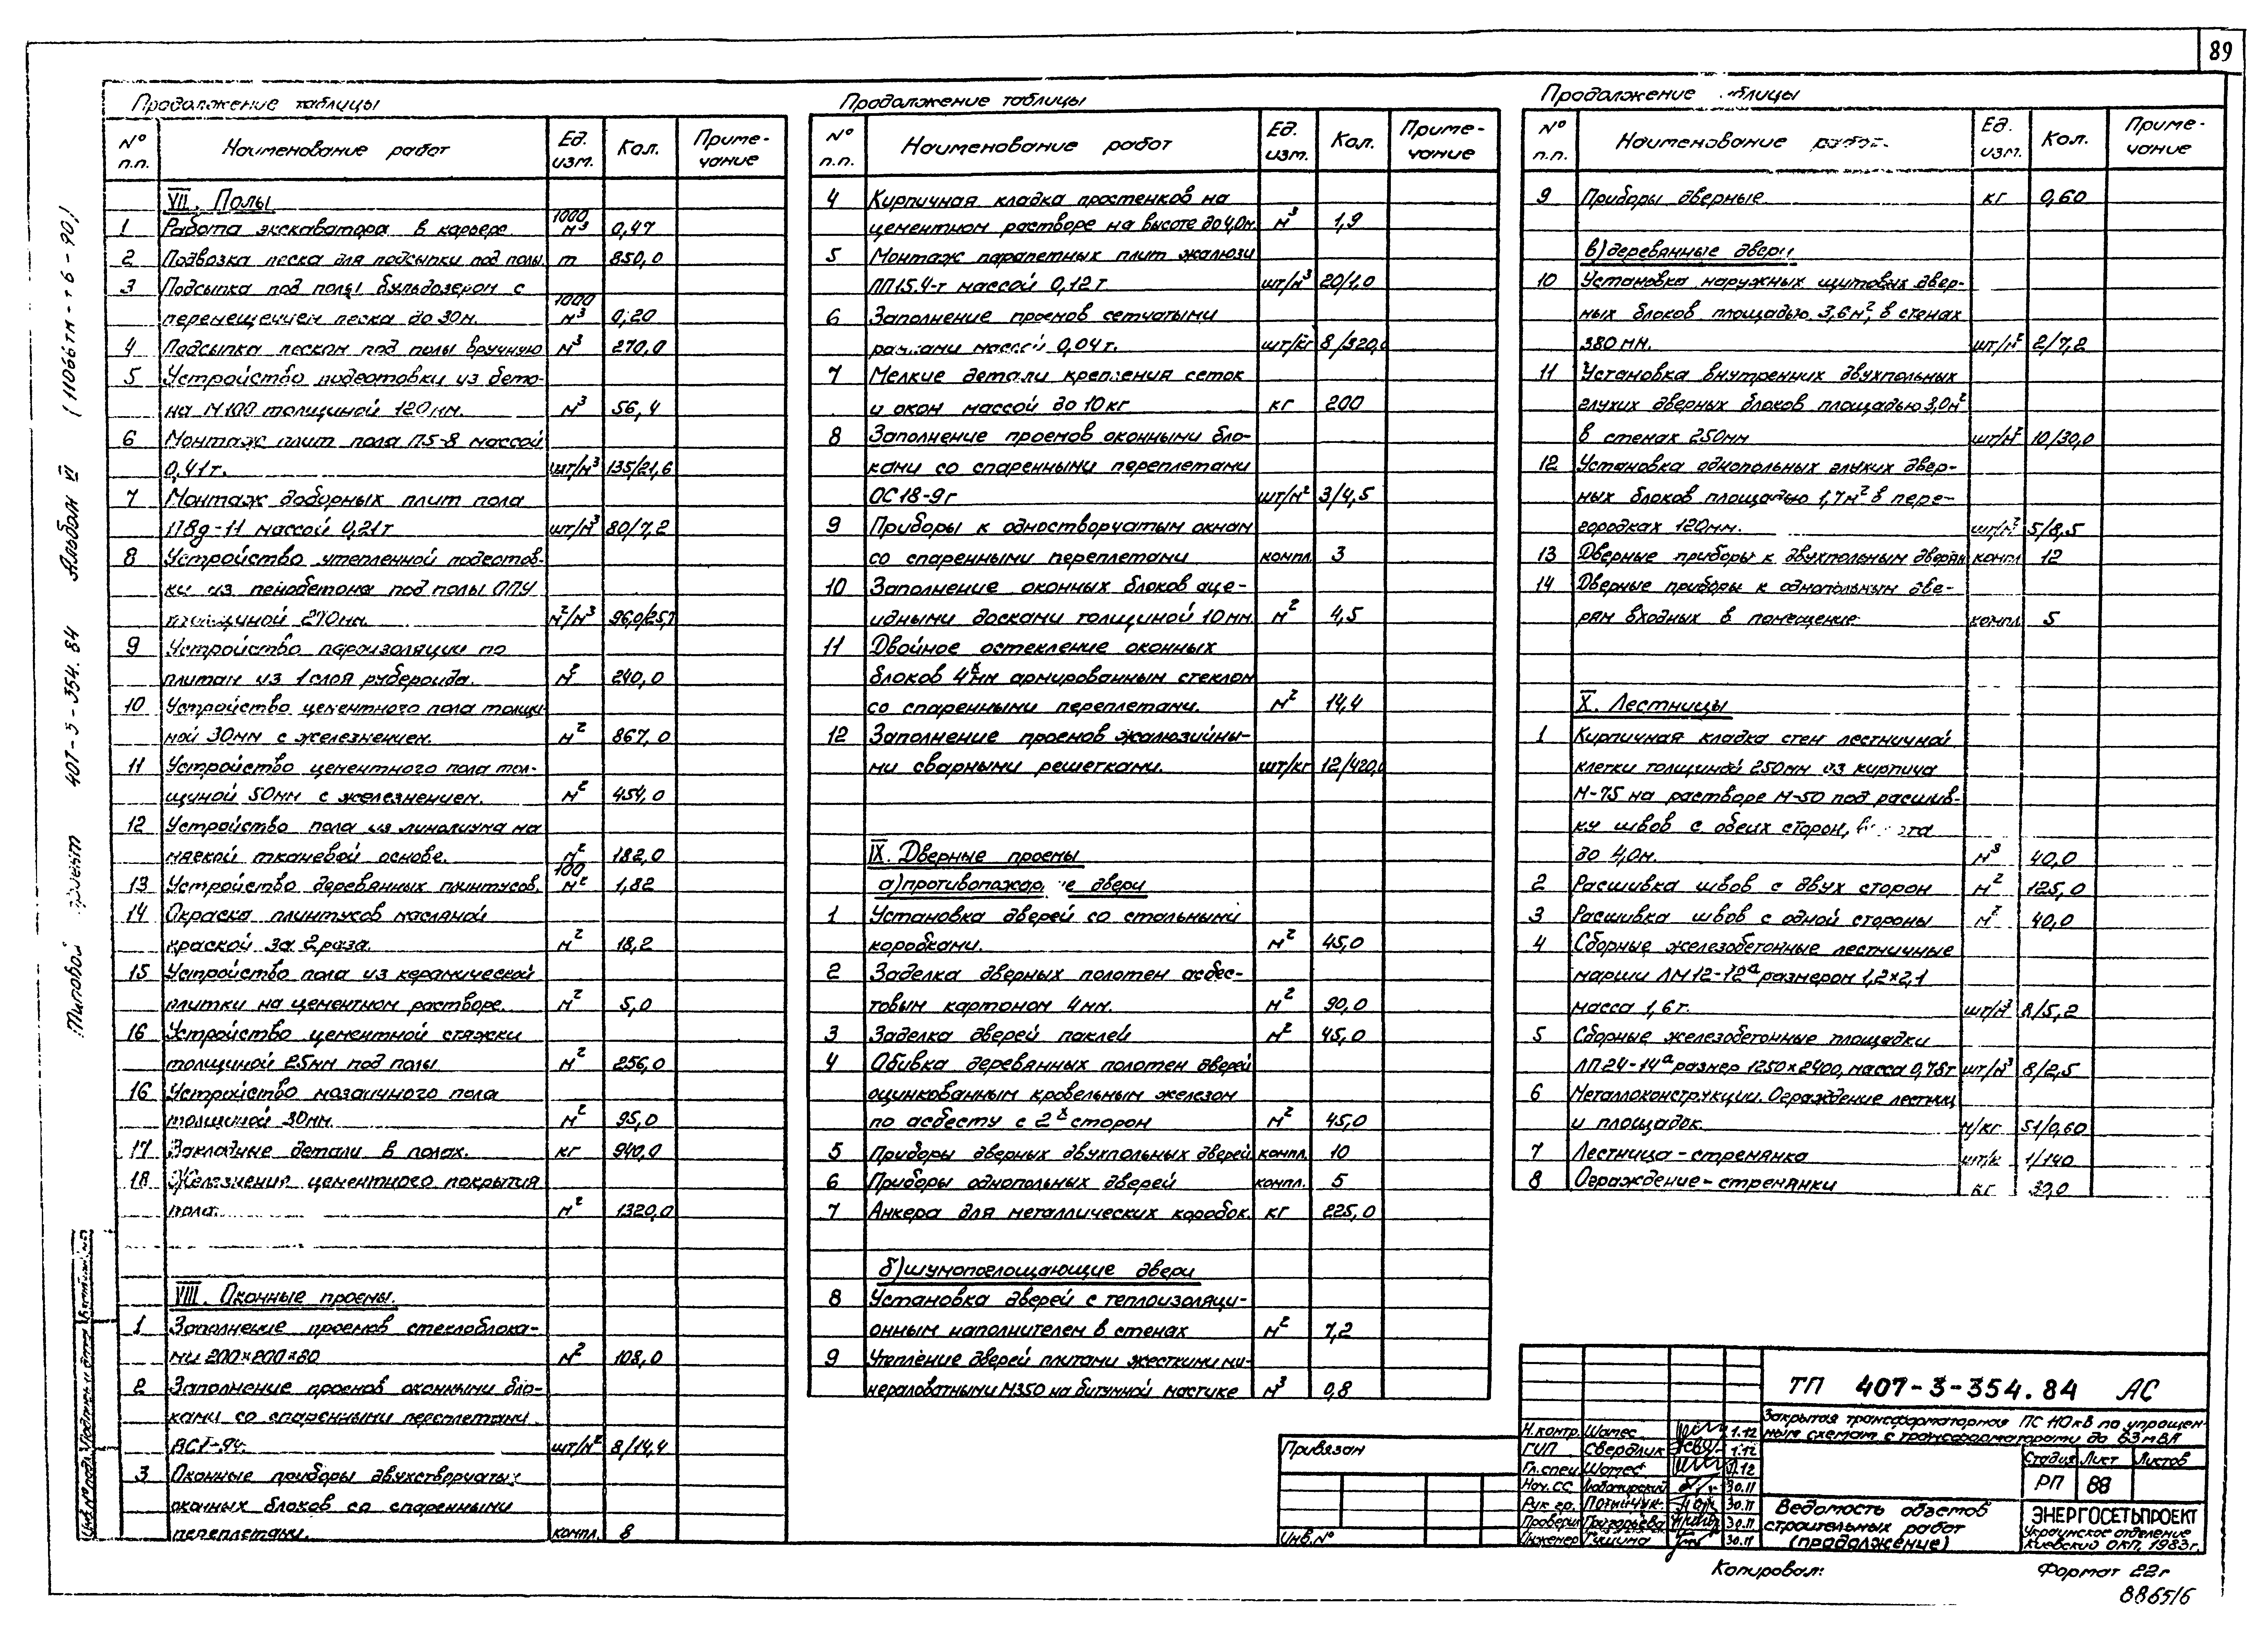 89
Продолжение таблицы
№ п.п. Наименование работ Ед. изм. Кол. Примечание
VII. Полы
1 Работа экскаватора в карьере 1000 м³ 0,47
2 Подвозка песка для подсыпки под полы т 850,0
3 Подсыпка под полы бульдозером с
перемещением песка до 30м. 1000 м³ 0,20
4 Подсыпка песком под полы вручную м³ 270,0
5 Устройство подготовки из бето-
на М100 толщиной 120мм. м³ 56,4
6 Монтаж плит пола П5-8 массой
0,41т. шт/м³ 135/21,6
7 Монтаж доборных плит пола
П8д-11 массой 0,21т шт/м³ 80/7,2
8 Устройство утепленной подготов-
ки из пенобетона под полы ОПУ
толщиной 270мм. м²/м³ 96,0/25,7
9 Устройство пароизоляции по
плитам из 1 слоя рубероида. м² 240,0
10 Устройство цементного пола толщи
ной 30мм с железнением. м² 867,0
11 Устройство цементного пола тол-
щиной 50мм с железнением. м² 454,0
12 Устройство пола из линолиума на
мягкой тканевой основе. м² 182,0
13 Устройство деревянных плинтусов. 100 м² 1,82
14 Окраска плинтусов масляной
краской за 2 раза. м² 18,2
15 Устройство пола из керамической
плитки на цементном растворе. м² 5,0
16 Устройство цементной стяжки
толщиной 25мм под полы м² 256,0
16 Устройство мозаичного пола
толщиной 30мм. м² 95,0
17 Закладные детали в полах. кг 940,0
18 Железнения цементного покрытия
пола. м² 1320,0
VIII. Оконные проемы.
1 Заполнение проемов стеклоблока-
ми 200×200×80 м² 108,0
2 Заполнение проемов оконными бло-
ками со спаренными переплетами
шт/м² 8/14,4
3 Оконные приборы двухстворчатых
оконных блоков со спаренными
переплетами. компл. 8
Продолжение таблицы
№ п.п. Наименование работ Ед. изм. Кол. Примечание
4 Кирпичная кладка простенков на
цементном растворе на высоте до 4,0м. м³ 1,9
5 Монтаж парапетных плит жалюзи
ПП15.4-т массой 0,12т шт/м³ 20/1,0
6 Заполнение проемов сетчатыми
рамками массой 0,04т. шт/кг 8/320,0
7 Мелкие детали крепления сеток
и окон массой до 10кг кг 200
8 Заполнение проемов оконными бло-
ками со спаренными переплетами
ОС18-9г шт/м² 3/4,5
9 Приборы к одностворчатым окнам
со спаренными переплетами компл. 3
10 Заполнение оконных блоков аце-
идными досками толщиной 10мм м² 4,5
11 Двойное остекление оконных
блоков 4х мм армированным стеклом
со спаренными переплетами. м² 14,4
12 Заполнение проемов жалюзийны-
ми сварными решетками. шт/кг 12/420,0
IX. Дверные проемы
а) противопожар е двери
1 Установка дверей со стальными
коробками. м² 45,0
2 Заделка дверных полотен асбес-
товым картоном 4мм. м² 90,0
3 Заделка дверей паклей м² 45,0
4 Обивка деревянных полотен дверей
оцинкованным кровельным железом
по асбесту с 2х сторон м² 45,0
5 Приборы дверных двухпольных дверей компл. 10
6 Приборы однопольных дверей компл. 5
7 Анкера для металлических коробок. кг 225,0
б) шумопоглощающие двери
8 Установка дверей с теплоизоляци-
онным наполнителем в стенах м² 7,2
9 Утепление дверей плитами жесткими ми-
нераловатными М350 на битумной мастике м³ 0,8
Продолжение блицы
№ п.п. Наименование работ. Ед. изм. Кол. Примечание
9 Приборы дверные. кг 0,60
в) деревянные двери
10 Установка наружных щитовых двер-
ных блоков площадью 3,6м², в стенах
380мм. шт/м² 2/7,2
11 Установка внутренних двухпольных
глухих дверных блоков площадью 3,0м²
в стенах 250мм шт/м² 10/30,0
12 Установка однопольных глухих двер-
ных блоков площадью 1,7м² в пере-
городках 120мм. шт/м² 5/8,5
13 Дверные приборы к двухпольным дверям компл 12
14 Дверные приборы к однопольным две-
рям входных в помещение компл. 5
X. Лестницы
1 Кирпичная кладка стен лестничной
клетки толщиной 250мм из кирпича
М-75 на растворе М-50 под расшив-
ку швов с обеих сторон,
до 4,0м. м³ 40,0
2 Расшивка швов с двух сторон м² 125,0
3 Расшивка швов с одной стороны м² 40,0
4 Сборные железобетонные лестничные
марши ЛМ12-12а размером 1,2×2,1
масса 1,6т. шт/м³ 8/5,2
5 Сборные железобетонные площадки
ЛП24-14а размер 1250×2400, масса 0,78т шт/м³ 8/2,5
6 Металлоконструкции. Ограждение лестниц
и площадок м/кг 51/0,60
7 Лестница-стремянка шт/к 1/140
8 Ограждение-стремянки кг 30,0
Типовой проект 407-3-354.84 Альбом VI (11066тм-т6-90)
Инв.№ подл. Подпись и дата
Привязан
Инв.№
ТП 407-3-354.84 АС
Закрытая трансформаторная ПС 110кВ по упрощен-
ным схемам с трансформаторами до 63мВА
Н.контр. Шамес 1.12
ГИП Свердлик 1.12
Гл.спец Шамес 1.12
Нач.СС 30.11
Рук гр. 30.11
Проверил Григорьева 30.11
Инженер Гущина 30.11
Стадия Лист Листов
РП 88
Ведомость объемов
строительных работ
(продолжение)
ЭНЕРГОСЕТЬПРОЕКТ
Украинское отделение
Киевский ОКП, 1983г.
Копировал:
Формат 22г
8865/6